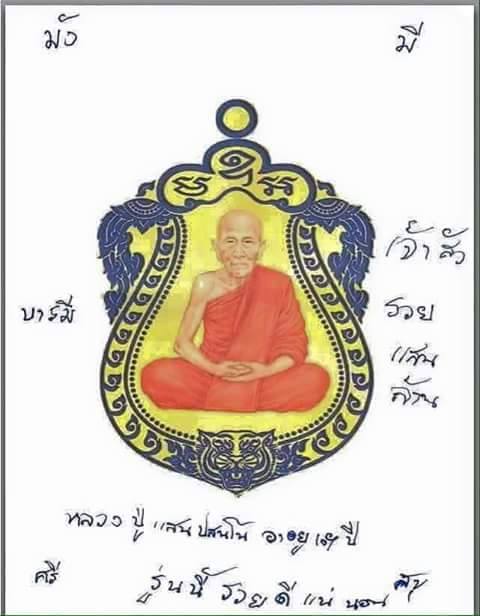 มั่ง
มี
เจ้าสัว
บารมี
รวย
แสน
ล้าน
หลวงปู่แสน ปสนโน อายุ ปี
ศรี
รุ่นนี้ รวย ดี แน่ นอน